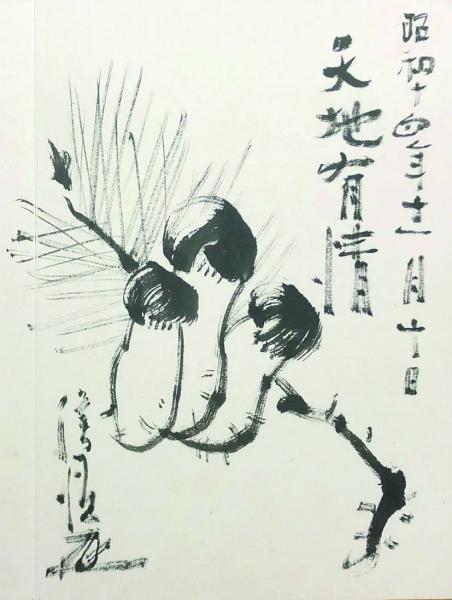 昭和十四年十一月十日
天地有情